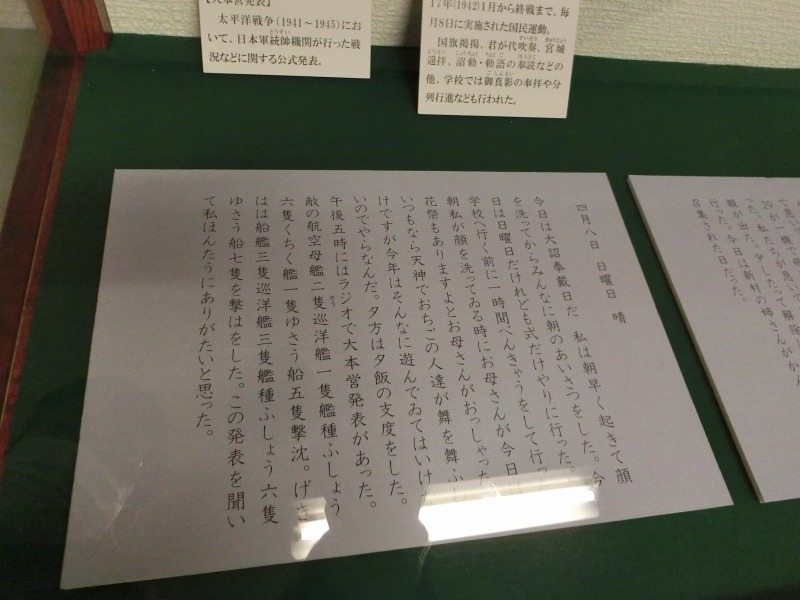 【大本営発表】
太平洋戦争(1941～1945)にお
いて、日本軍統帥機関が行った戦
況などに関する公式発表。
17年(1942)1月から終戦まで、毎
月8日に実施された国民運動。
国旗掲揚、君が代吹奏、宮城
遥拝、詔勅・勅語の奉読などの
他、学校では御真影の奉拝や分
列行進なども行われた。
四月八日 日曜日 晴
今日は大詔奉戴日だ 私は朝早く起きて顔
を洗ってからみんなに朝のあいさつをした。今
日は日曜日だけれども式だけやりに行った。
学校へ行く前に一時間べんきゃうをして行っ
朝私が顔を洗ってゐる時にお母さんが今日
花祭もありますよとお母さんがおっしゃった
いつもなら天神でおちごの人達が舞を舞ふ
けですが今年はそんなに遊んでゐてはいけ
いのでやらなんだ。夕方は夕飯の支度をした。
午後五時にはラジオで大本営発表があった。
敵の航空母艦二隻巡洋艦一隻艦種ふしょう
六隻くちく艦一隻ゆさう船五隻撃沈。げき
はは船艦三隻巡洋艦三隻艦種ふしょう六隻
ゆさう船七隻を撃はをした。この発表を聞い
て私ほんたうにありがたいと思った。
29が一機で
った。私たちが急いで
報が出た。少したって解除し
行った。今日は新村の姉さんがかん
召集された日だった。